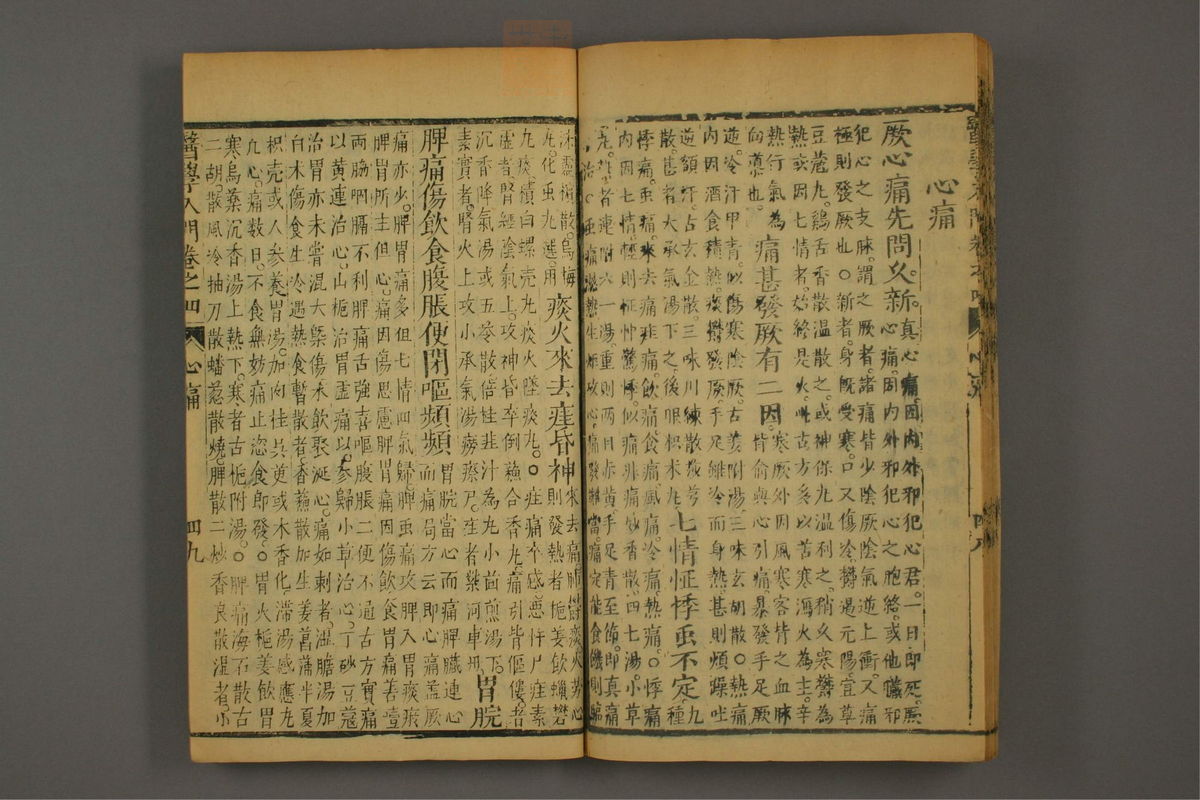 心痛
厥心痛先問久新真心痛因內外邪犯心君一日即死厥
心痛因內外邪犯心之胞絡或他臟邪
犯心之支脉謂之厥者諸痛皆少陰厥陰氣逆上衝又痛
極則發厥也○新者身既受寒口又傷冷鬱遏元陽宜草
豆蔻丸鷄舌香散溫散之或神保丸溫利之稍久寒鬱為
熱或因七情者始終是火此古方多以苦寒瀉火為主辛
熱行氣為
向導也
痛甚發厥有二因寒厥外因風寒客背之血脉
背俞與心引痛暴發手足厥
逆冷汗甲青似傷寒陰厥古姜附湯三味玄胡散○熱痛
內因酒食積熱痰鬱發厥手足雖冷而身熱甚則煩躁吐
逆額汗占玄金散三味川練散
散甚者大承氣湯下之後服枳朮丸
七情怔悸虫不定九種
悸痛虫痛來去痛非痛飲痛食痛風痛冷痛熱痛○悸痛
內因七情輕則怔忡驚悸似痛非痛妙香散四七湯小草
丸者連附六一湯重則兩目赤黃手足青至節即真痛
虫痛
丸化虫丸選用
痰火來去疰昏神來去痛
則發熱者梔姜飲蠟礬
丸痰積白螺壳丸痰火墜痰丸○疰痛卒感惡忤尸疰素
虛者腎經陰氣上攻神昏卒倒蘇合香丸痛引背傴僂者
沉香降氣湯或五苓散倍桂韭汁為丸小茴煎湯下
素實者腎火上攻小承氣湯癆瘵尸疰者紫河車丹
胃脘
脾痛傷飲食腹脹便閉嘔頻頻胃脘當心而痛脾臟連心
而痛局方云即心痛蓋厥
痛亦少脾胃痛多但七情四氣歸脾虫痛攻脾入胃痰瘀
脾胃所主但心痛因傷思慮脾胃痛因傷飲食胃痛善噎
兩脇咽膈不利脾痛舌強喜嘔腹脹二便不通古方實痛
以黃連治心山梔治胃虛痛以參歸小草治心丁砂豆蔻
治胃亦未嘗混大槩傷水飲聚涎心痛如刺者溫膽湯加
白朮傷食生冷遇熱食暫散者香蘇散加生姜菖蒲半夏
枳壳或人參養胃湯加肉桂吳萸或木香化滯湯感應丸
○心痛數日不食無妨痛止恣食即發○胃火梔姜飲胃
寒烏藥沉香湯上熱下寒者古梔附湯○脾痛海石散古
二胡散風冷抽刀散蟠葱散燒脾散二炒香良散溫者小
醫學入門卷之四
心痛
四九